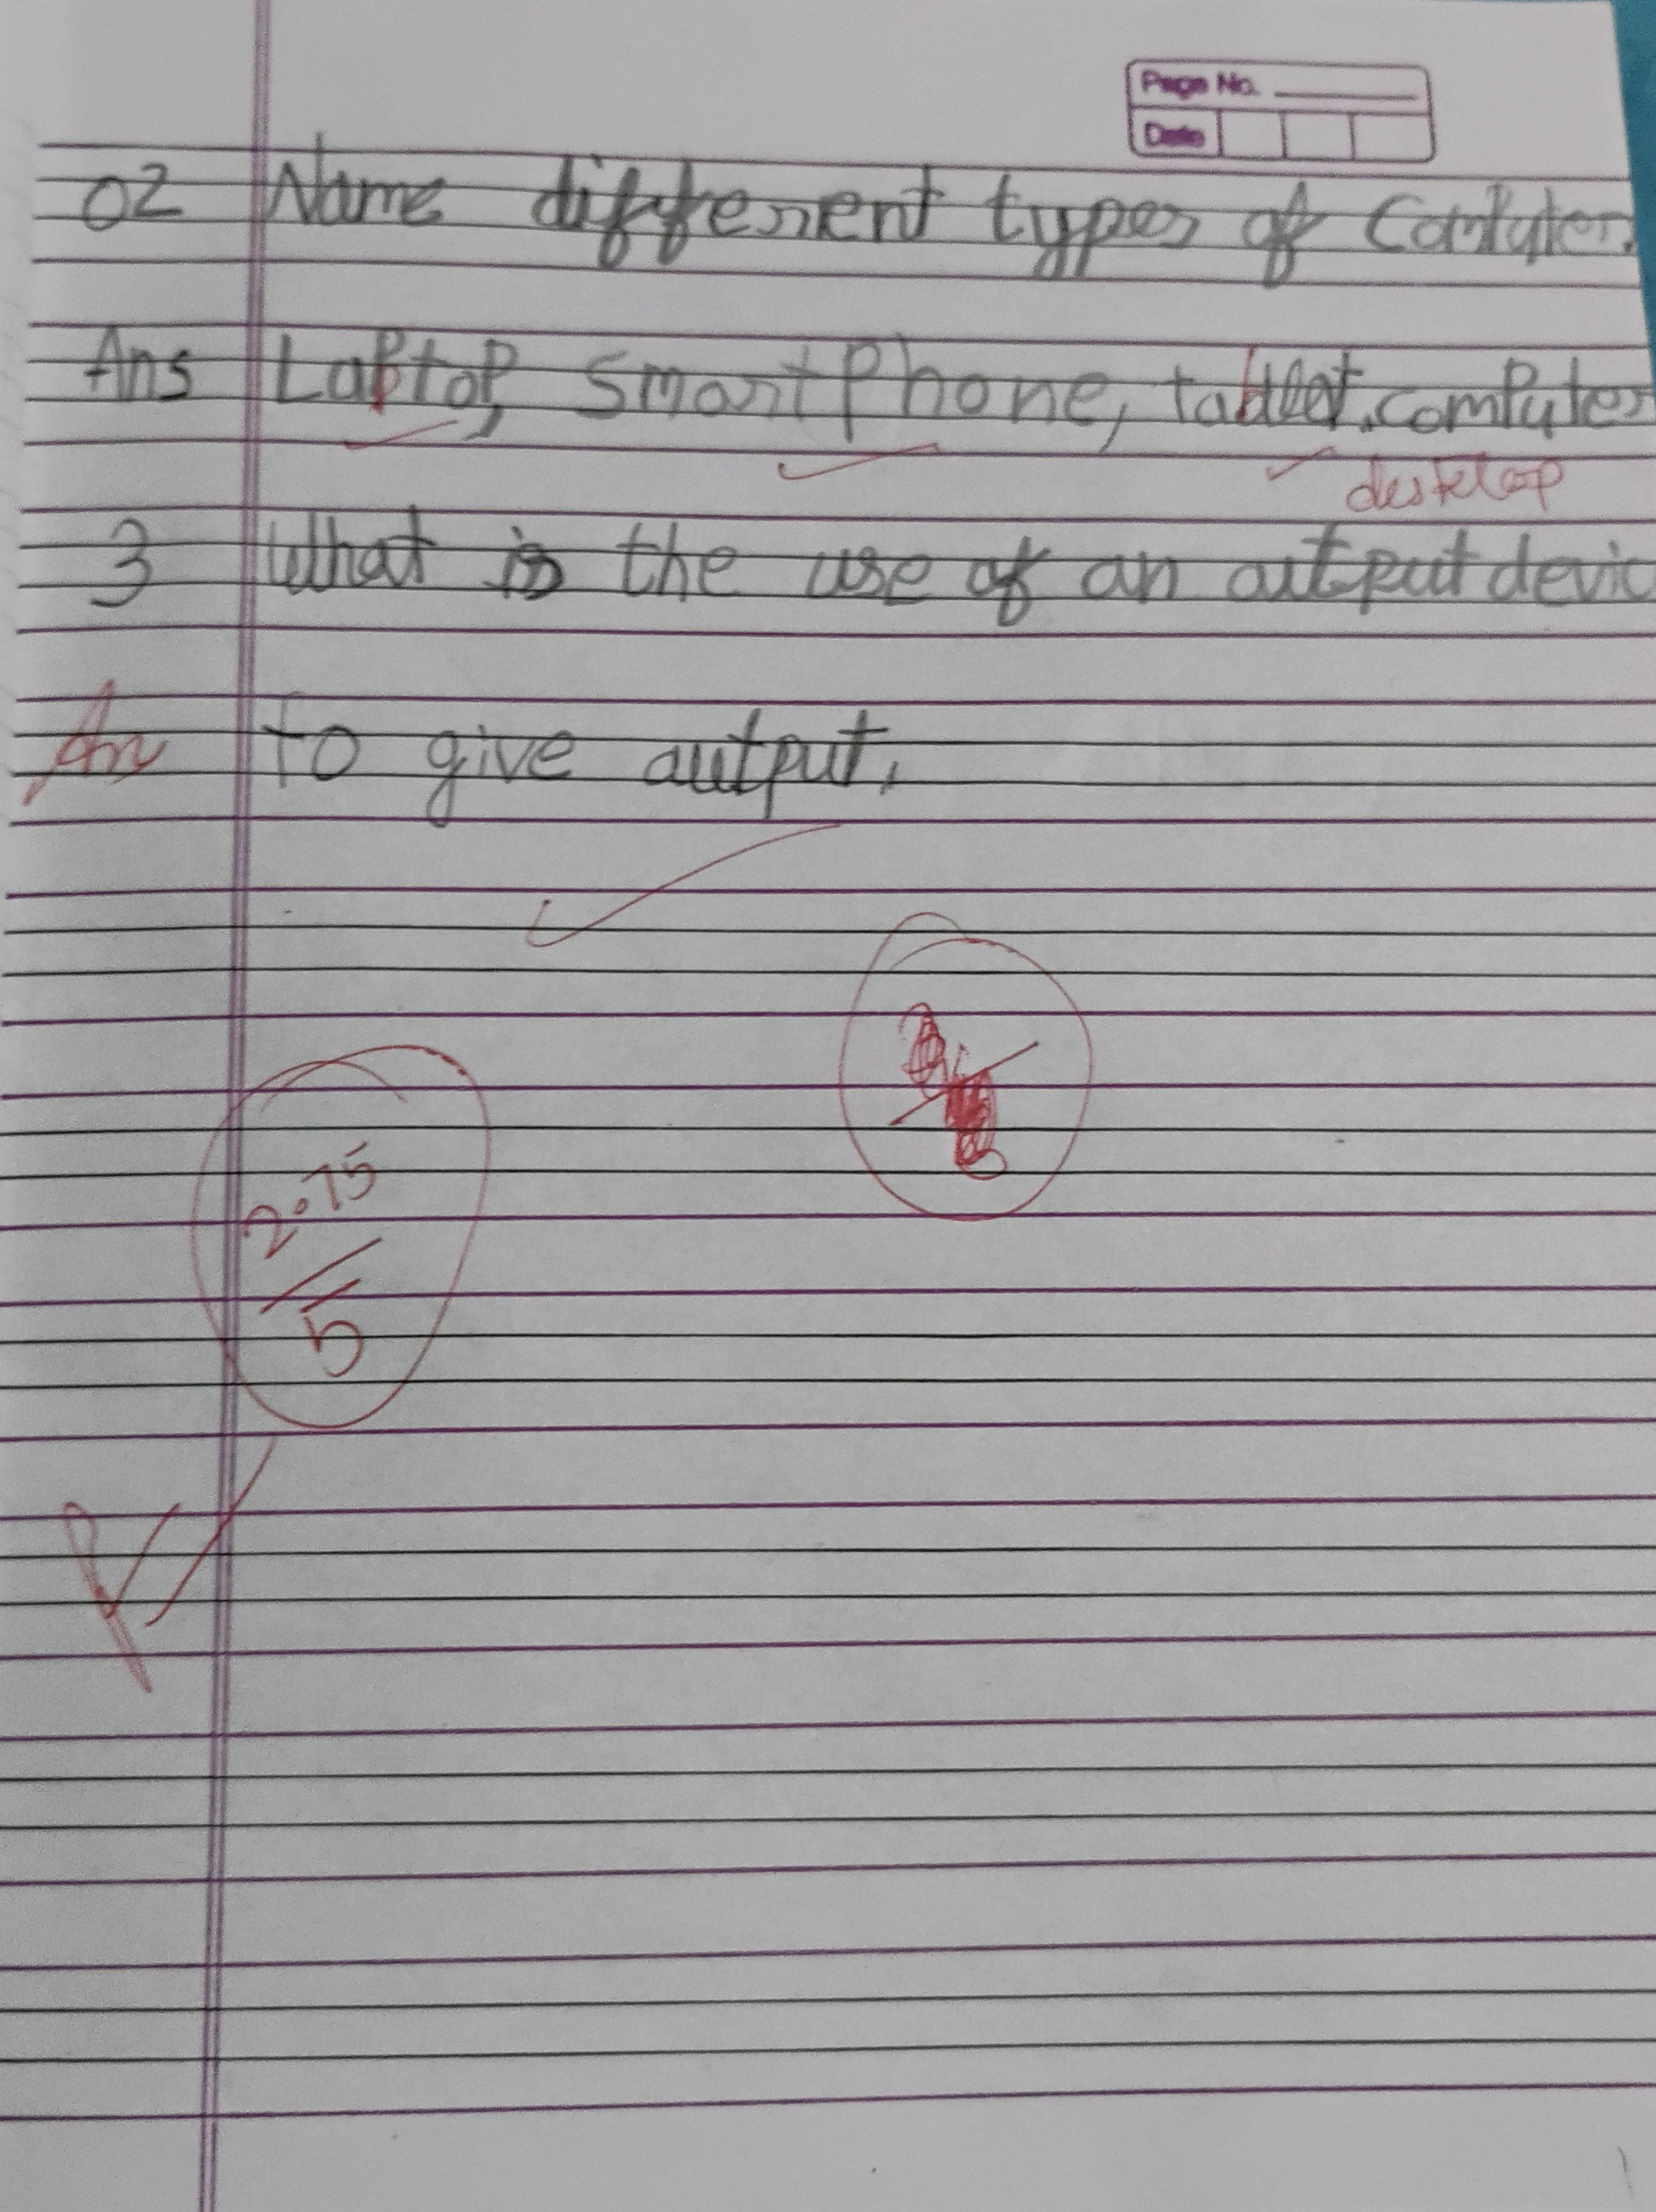 Page No.
Date
02 Name different types of Computer.
Ans Laptop, smartPhone, tablet, computer
desktop
3 What is the use of an output devic
An to give output.
2.75
5